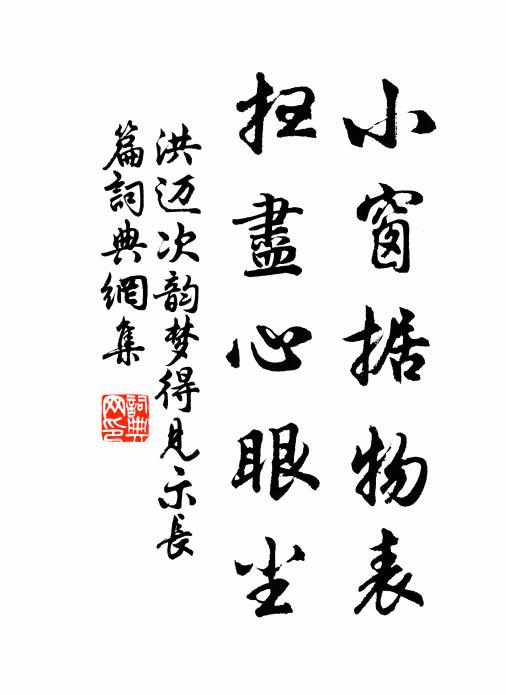 小窗据物表
扫盡心眼尘
洪迈次韵梦得见示長
篇詞典網集
詞典
网印